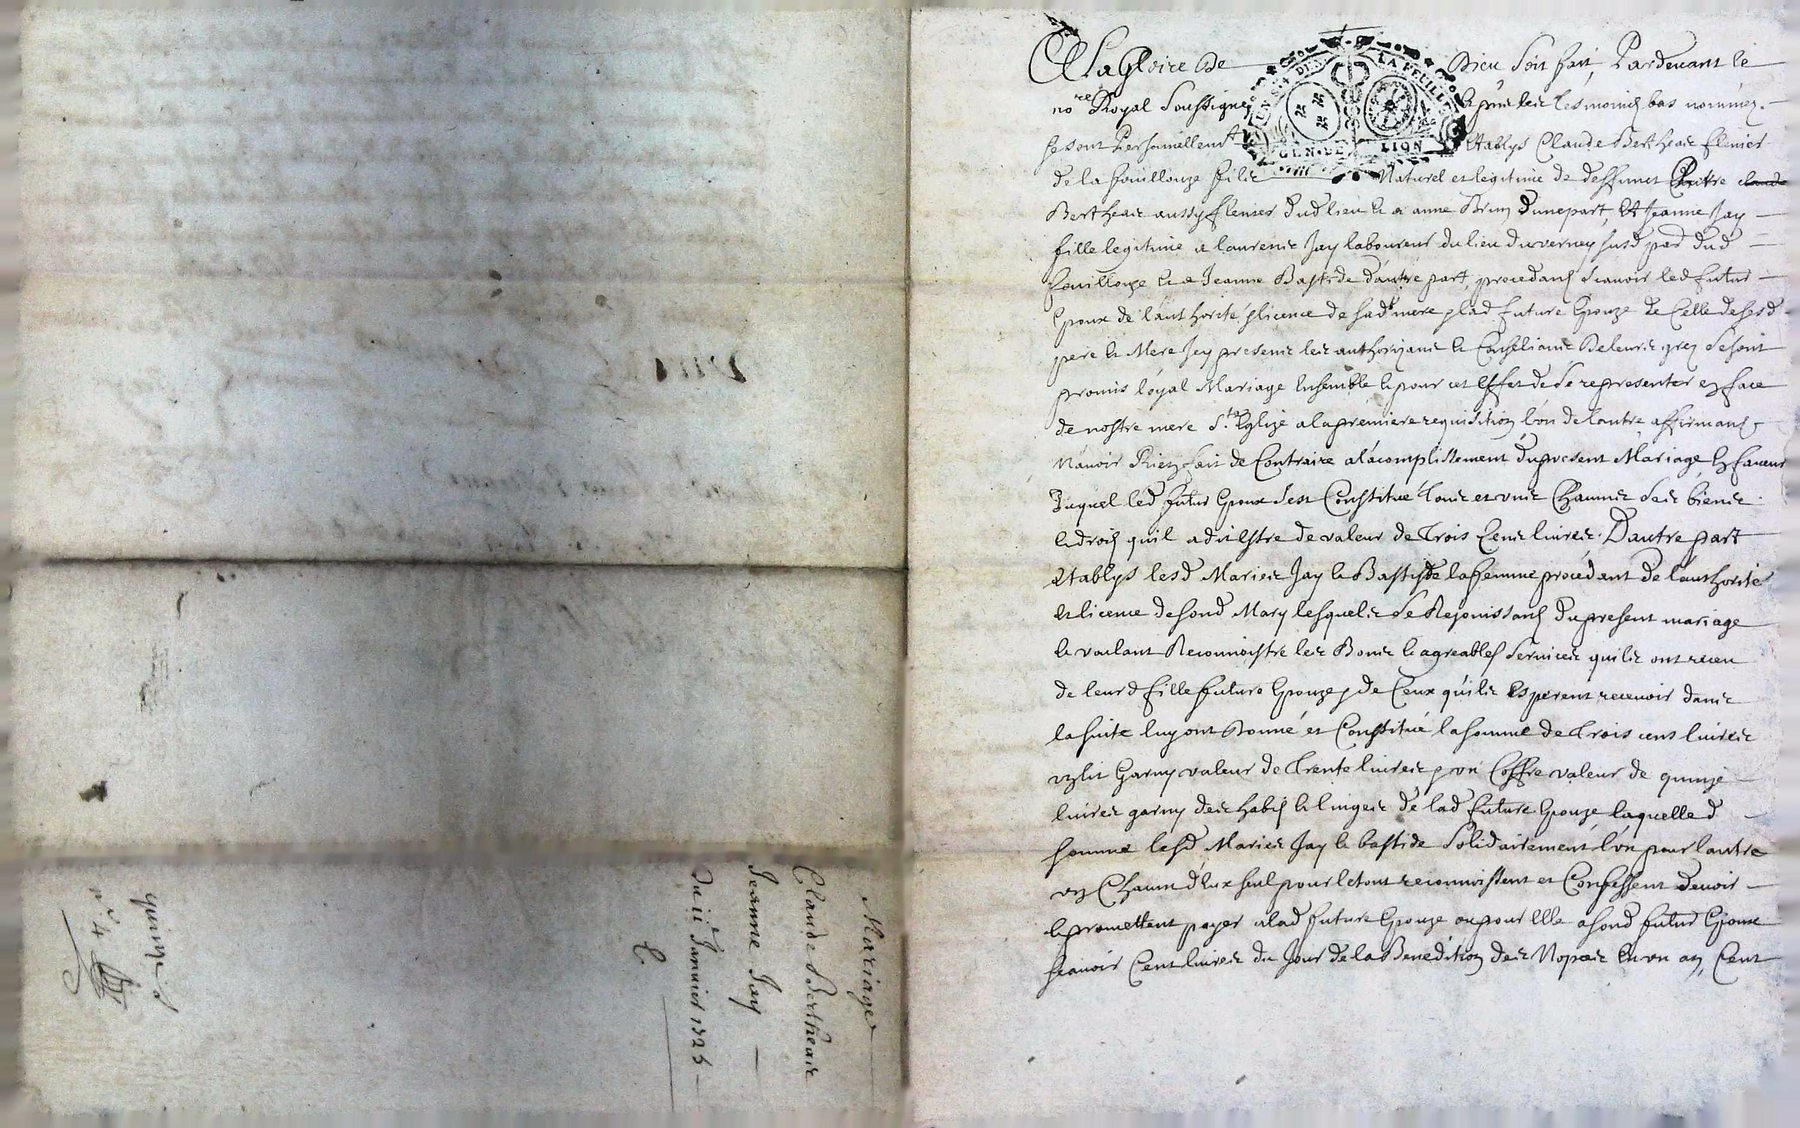 Mariage
Claude Bertheas
Jeanne Jay
Du 11e Janvier 1725
quinze s
n° 4
GEN. DE LION
LA FEUILLE
A La Gloire de Dieu soit fait, Pardevant le
nore Royal soussigné & presens les tesmoins bas nommez
se sont Personnellemt Etablys Claude Bertheas
de la fouillouze fils Naturel et legitime de deffunct
Bertheas aussy dud lieu & a anne Brun d'une part, Et Jeanne Jay
fille legitime a laurens Jay laboureur du lieu du verney susd par dud
fouillouze & a Jeanne Bastide d'autre part, procedans scavoir led futur
Epoux de l'authorité & licence de sad mere & lad future Epouze de Celle de sesd
pere & Mere Icy presens les authorizans & Conseillans De leurs grez se sont
promis loyal Mariage Ensemble & pour cet Effet de se representer en face
de nostre mere Ste Eglize a la premiere requisition l'un de l'autre affirmans
N'avoir Rien fait de Contraire a l'acomplissement du present Mariage En faveur
Duquel led futur Epoux s'est Constitué tous et uns Chaums ses biens
& droits qu'il a dit Estre de valeur de Trois Cens livres. D'autre part
Etablys lesd Mariés Jay & Bastide sa femme procédant de l'authorité
et licence de sond Mary lesquels se Rejouissans du present mariage
& voulant Reconnoistre les Bons & agreables services qu'ils ont receu
de leurd fille future Epouze & de Ceux qu'ils Esperent recevoir dans
la suite luy ont Donné et Constitué la somme de Trois cens livres
un lit Garny valeur de Trente livres & un Coffre valeur de quinze
livres garny des habis & linges de lad future Epouze laquelle d
somme lesd Mariés Jay & bastide solidairement l'un pour l'autre
un Chacun d'Eux seul pour le tout reconnoissent et Confessent devoir
& promettent payer a lad future Epouze ou pour Elle a sond futur Epoux
scavoir Cent livres du Jour de la Benediction des Nopces En un an, Cent